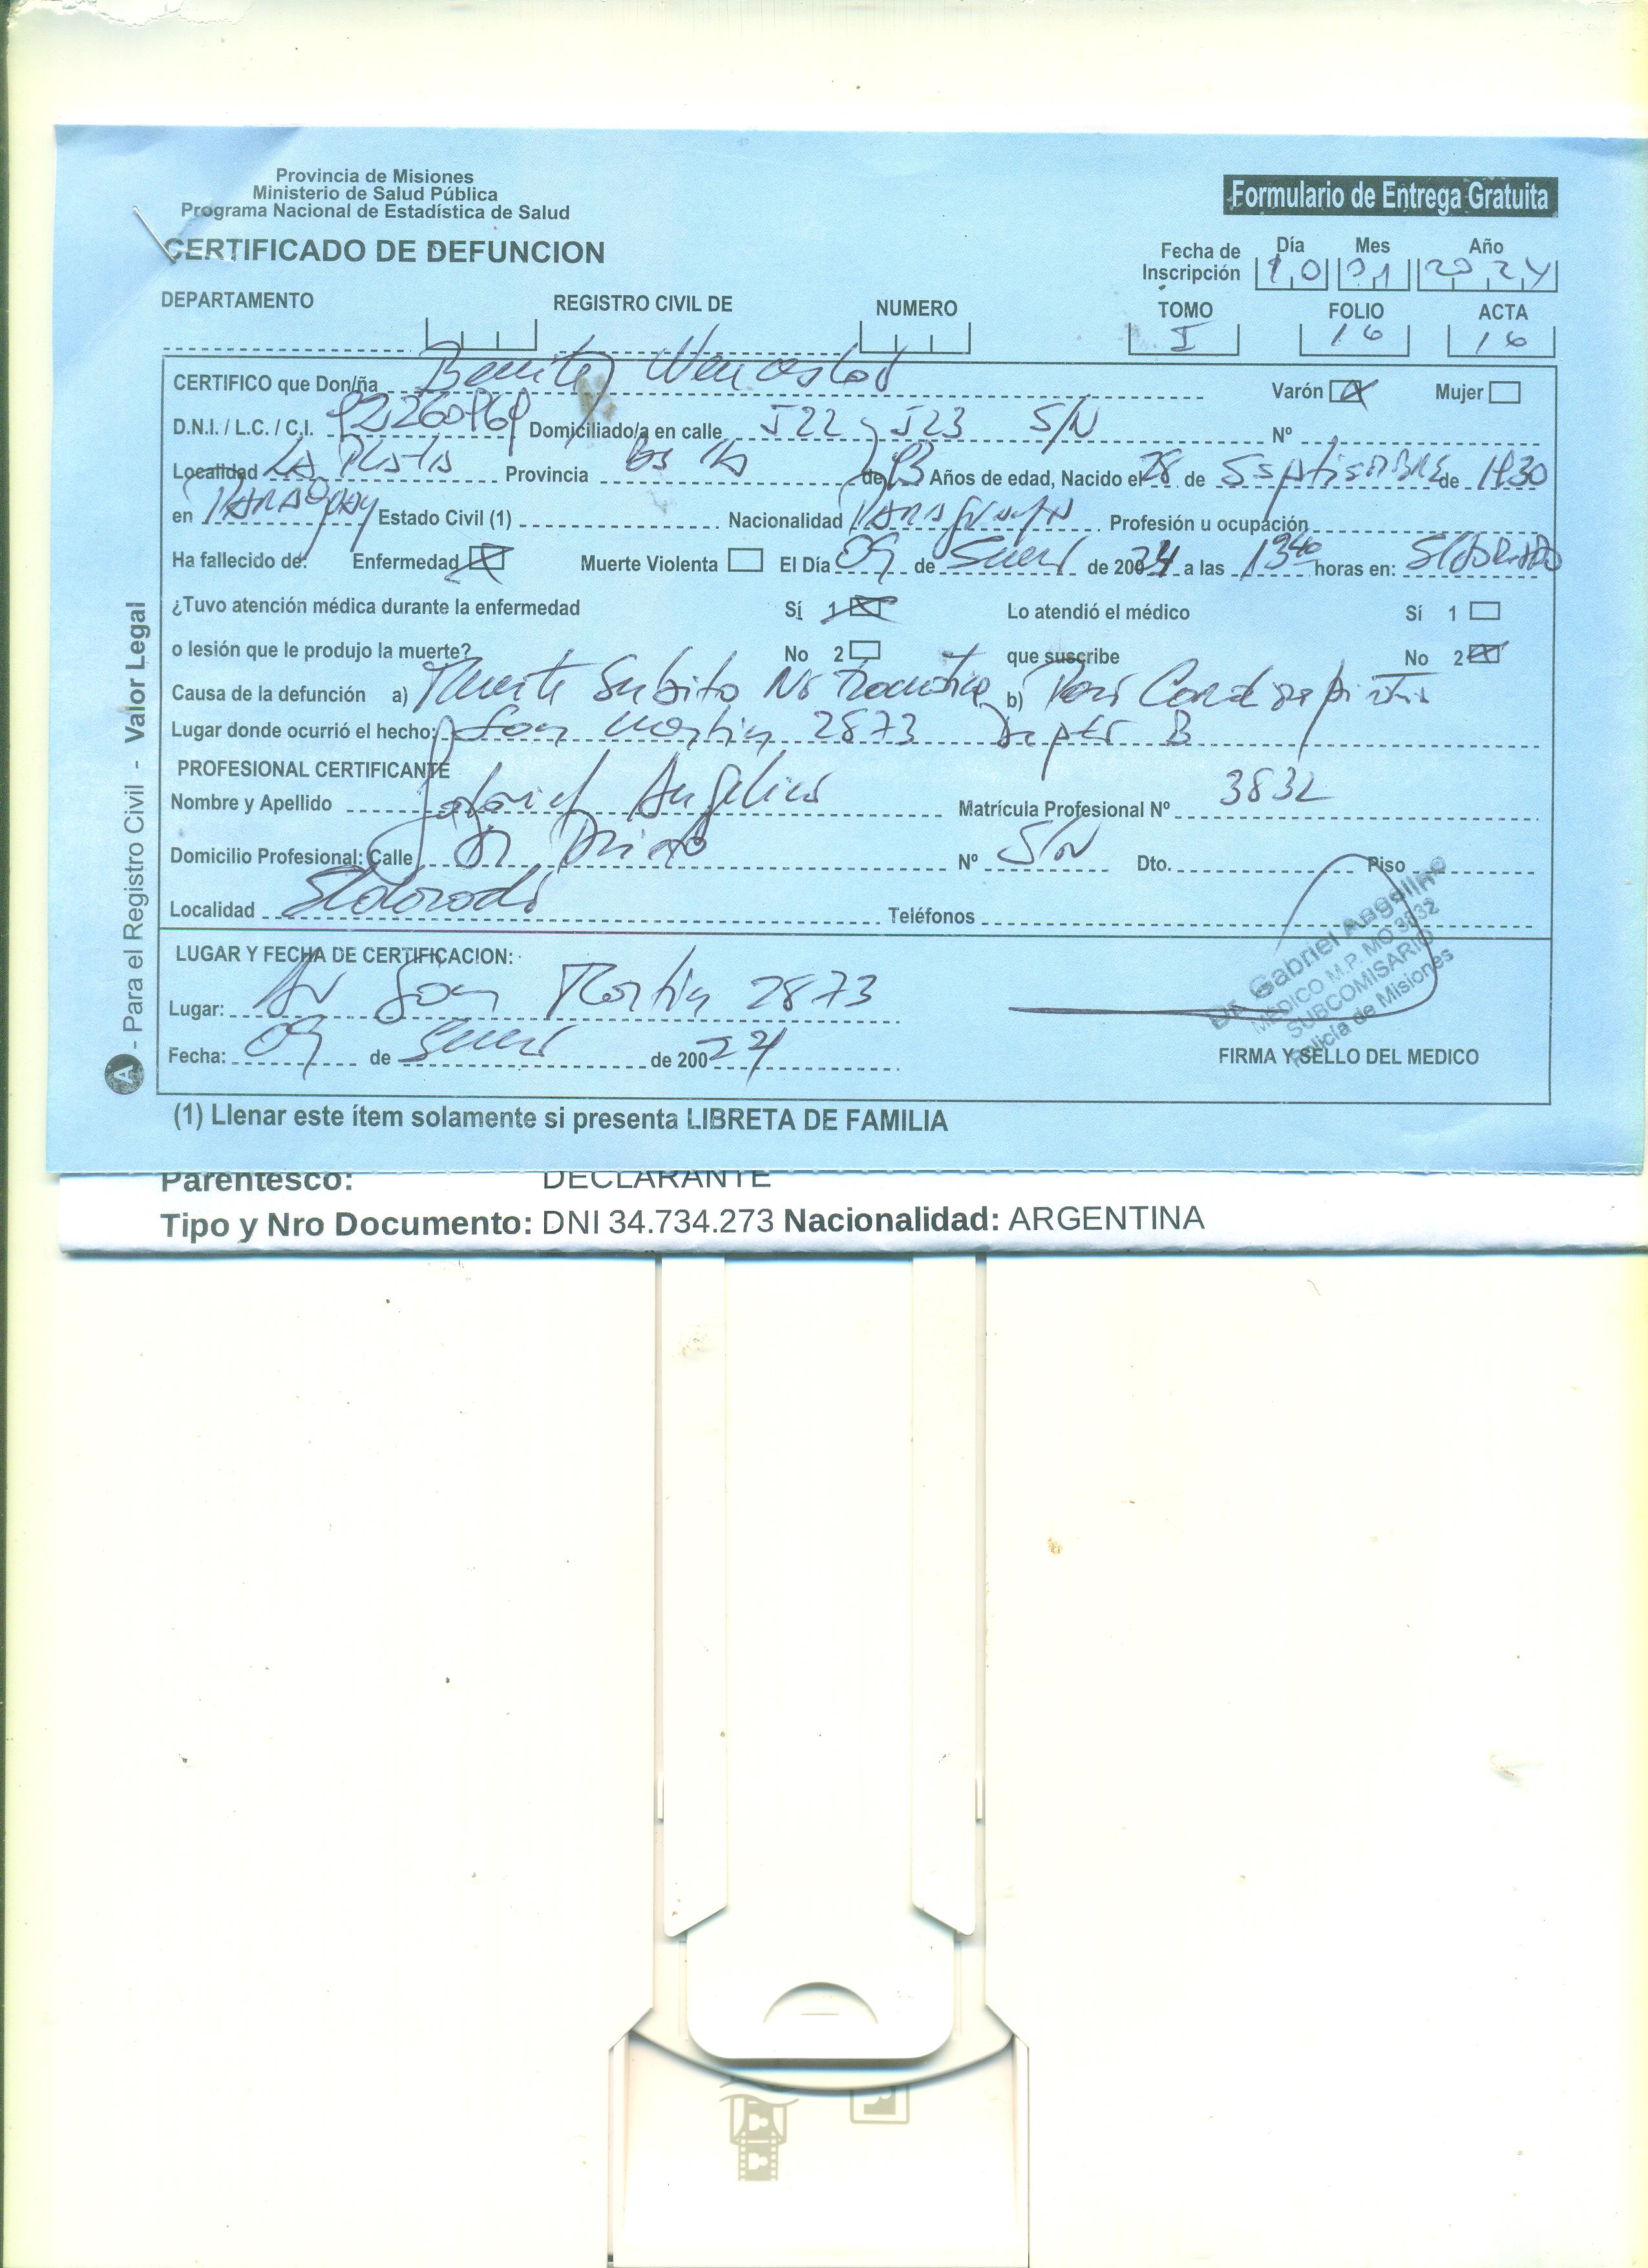 Provincia de Misiones
Ministerio de Salud Pública
Programa Nacional de Estadística de Salud
Formulario de Entrega Gratuita
CERTIFICADO DE DEFUNCION
Fecha de Inscripción Día 10 Mes 01 Año 2024
DEPARTAMENTO REGISTRO CIVIL DE NUMERO TOMO I FOLIO 16 ACTA 16
CERTIFICO que Don/ña Benitez Wenceslao Varón Mujer
D.N.I. / L.C. / C.I. Domiciliado/a en calle 522 y 523 S/N Nº
Localidad La Plata Provincia Bs As de 93 Años de edad, Nacido el 28 de Septiembre de 1930
en Paraguay Estado Civil (1) Nacionalidad Paraguaya Profesión u ocupación
Ha fallecido de: Enfermedad Muerte Violenta El Día 09 de Enero de 20024 a las 13 40 horas en: Eldorado
¿Tuvo atención médica durante la enfermedad Sí 1 Lo atendió el médico Sí 1
o lesión que le produjo la muerte? No 2 que suscribe No 2
Causa de la defunción a) Muerte Subita No Traumatica b) Paro Cardiorespiratorio
Lugar donde ocurrió el hecho: San Martin 2873 Depto B
PROFESIONAL CERTIFICANTE
Nombre y Apellido Gabriel Angelino Matrícula Profesional Nº 3832
Domicilio Profesional: Calle Nº S/N Dto. Piso
Localidad Eldorado Teléfonos
Dr. Gabriel Angelino
MEDICO M.P. MO 3832
SUBCOMISARIO
Policia de Misiones
LUGAR Y FECHA DE CERTIFICACION:
Lugar: Av San Martin 2873
Fecha: 09 de Enero de 20024 FIRMA Y SELLO DEL MEDICO
(1) Llenar este ítem solamente si presenta LIBRETA DE FAMILIA
A - Para el Registro Civil - Valor Legal
Parentesco: DECLARANTE
Tipo y Nro Documento: DNI 34.734.273 Nacionalidad: ARGENTINA